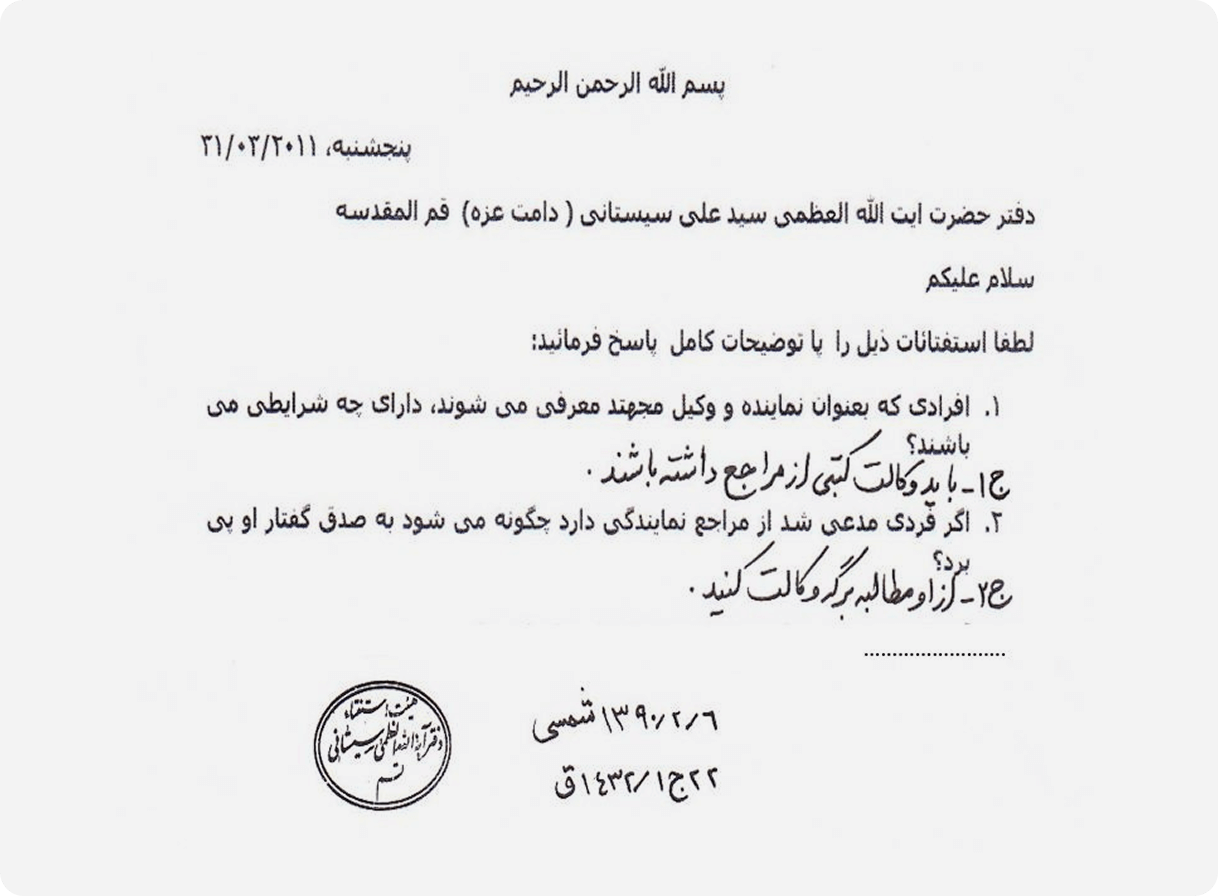 بسم الله الرحمن الرحیم
پنجشنبه، ۳۱/۰۳/۲۰۱۱
دفتر حضرت ایت الله العظمی سید علی سیستانی ( دامت عزه) قم المقدسه
سلام علیکم
لطفا استفتائات ذیل را با توضیحات کامل پاسخ فرمائید:
۱. افرادی که بعنوان نماینده و وکیل مجهتد معرفی می شوند، دارای چه شرایطی می
باشند؟
ج۱- باید وکالت کتبی از مراجع داشته باشند .
۲. اگر فردی مدعی شد از مراجع نمایندگی دارد چگونه می شود به صدق گفتار او پی
برد؟
ج۲- از او مطالبه برگه وکالت کنید .
......................
۱۳۹۰/۲/۶ شمسی
۲۲ ج۱/ ۱۴۳۲ ق
هیئت استفتاء
دفتر آیة الله العظمی سیستانی
قم